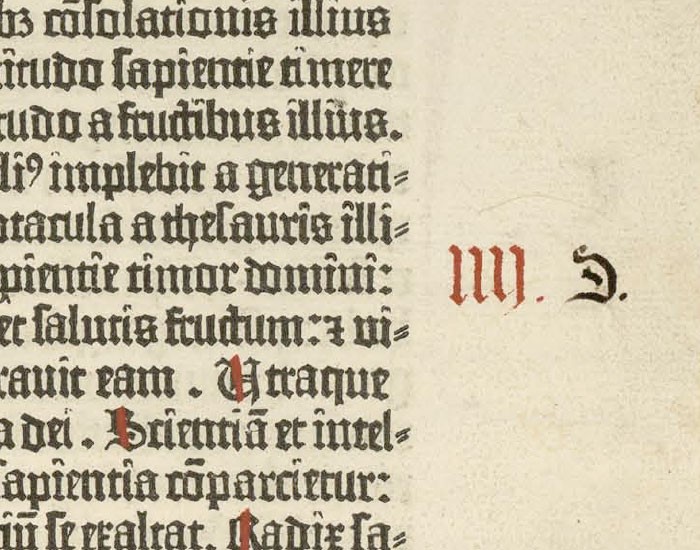 bꝫ cōſolationis illius
titudo ſapientie timere
tudo a fructibus illius.
liꝰ implebit a generati⸗
ptacula a theſauris illi⸗
pientie timor domini:
IIIJ. D.
et ſalutis fructum: ⁊ ui⸗
rauit eam . Utraque
a dei . Scientiā et intel⸗
ſapientia cōparcietur:
iū ſe exaltat. Radix ſa⸗